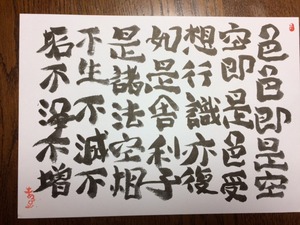 色色即是空
空即是色受
想行識亦復
如是舎利子
是諸法空相
不生不滅不
垢不浄不増